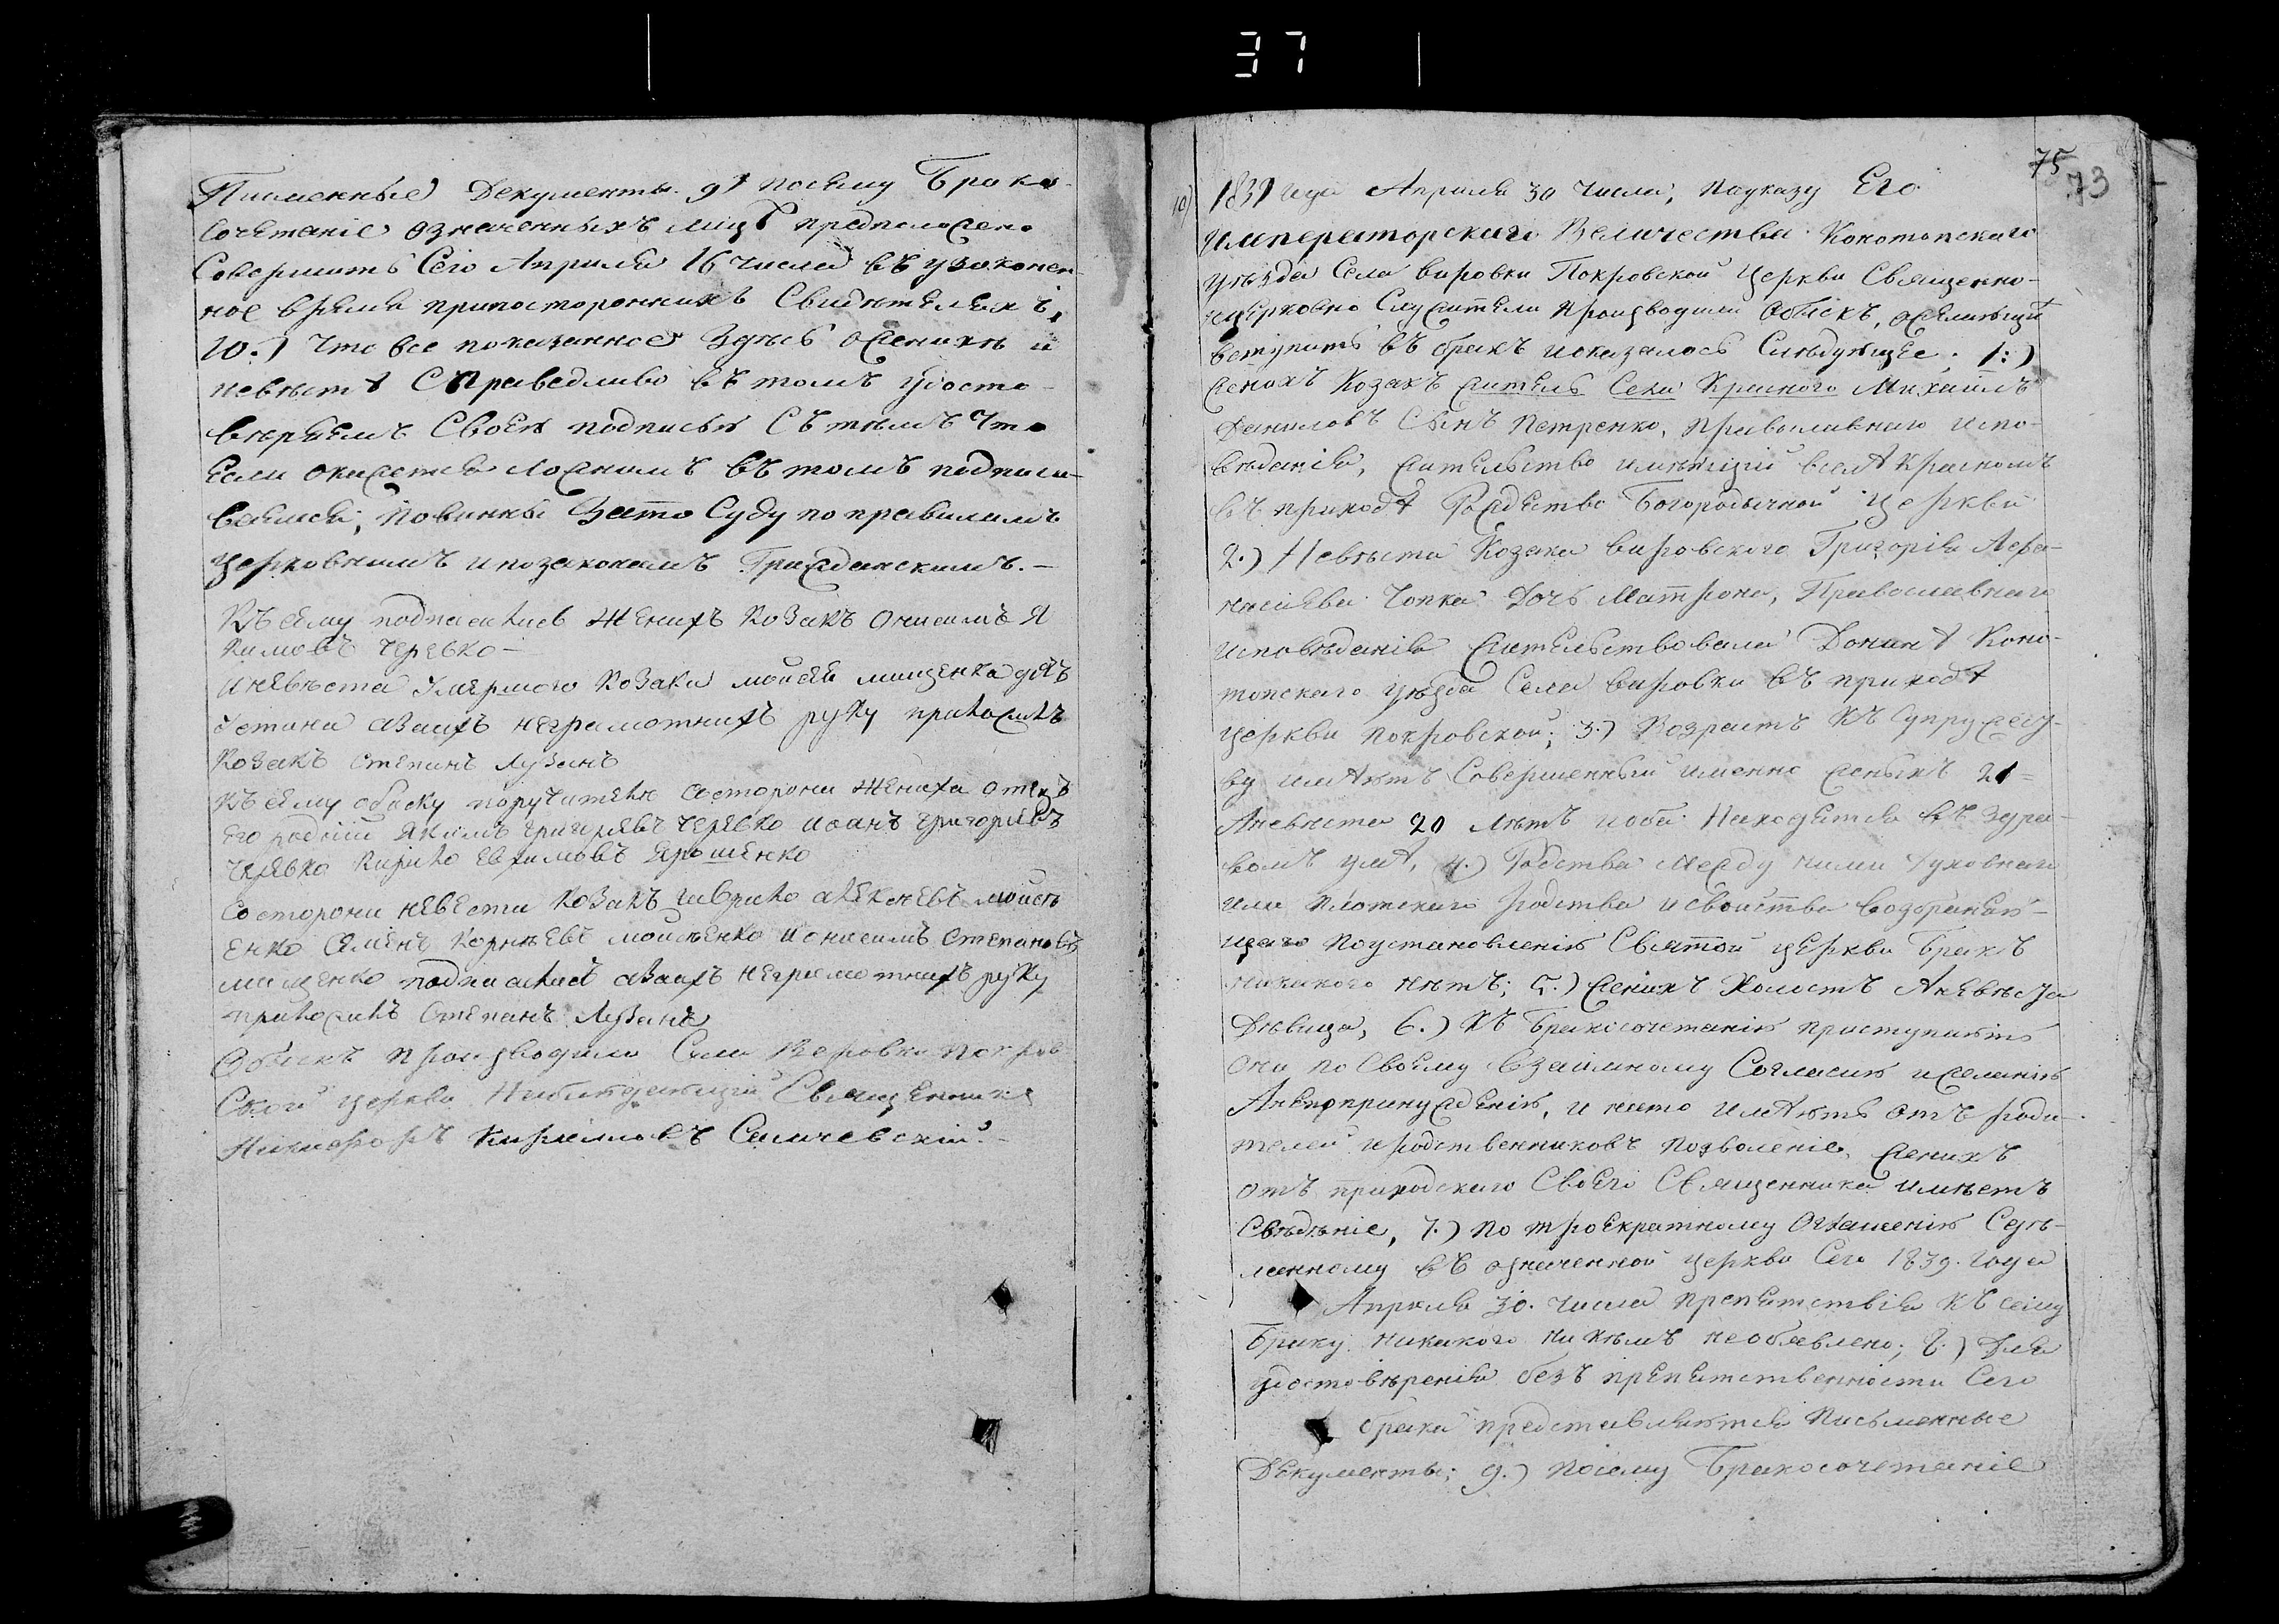 37
Писменные Декументы. 9) посему Брако-
сочетаніе означенныхъ лицъ предположено
Совершить Сего Апреля 16 числа въ узаконен-
ное время припостороннихъ Свидѣтеляхъ,
10.) Что все показанное здѣсь оженихѣ и
невѣстѣ Справедливо въ томъ Удосто-
вѣряемъ Своею подписью Съ тѣмъ что
Если окажется ложнимъ въ томъ подписа-
ваемся, повинны Зато Суду по правиламъ
Церковнимъ ипозаконамъ Гражданскимъ. –
Къ сему подписались женихъ Козакъ Онисимъ Я
кимовъ Черевко –
И невѣста Умершого Козака мойсея мищенка дочь
Устина авмѣсто неграмотнихъ руку приложилъ
Козакъ Степанъ Лузанъ
Къ сему обиску поручители состорони жениха отецъ
Его родній Якимъ григоревъ черевко иоанъ григорьевъ
черевко Кирило Евхимовъ Ярошенко
Состорони невести Козакъ гаврило алексѣевъ мойсѣ
енко Семенъ Корнѣевъ мойсѣенко и онисимъ Степановъ
мищенко подписались неграмотнихъ руку
приложилъ Степанъ Лузанъ
Обискъ производили Села Веровки Покров
Ской церкви Священникъ
Никифоръ Кириловъ Самчевскій.
75
73
10)
1839 года Апреля 30 числа, поуказу Его
Императорскаго Величества Конотопскаго
уѣзда Села Вировки Покровской Церкви Священно-
ицерковно Служители производили Обискъ, ожелающихъ
вступить въ бракъ иоказалось Слѣдующее: 1:)
женихъ Козакъ житель Села Красного Михаилъ
Даниловъ Синъ Петренко, православнаго испо-
вѣданія, жительство имѣющій вселѣ Красномъ
въ приходѣ Рождество Богородычной Церкви
2.) Невѣста Козака вировского Григорія Афа-
насиева Чопка Дочь Матрона, Православнаго
исповѣданія жительствовала Донинѣ Коно-
топскаго уѣзда Села вировки въ приходѣ
Церкви покровской; 3.) Возрастъ къ супружесту-
ву имѣютъ Совершенный именно женихъ 21-
Аневѣста 20 лѣтъ иоба Находятся въ здра-
вомъ умѣ, 4.) Родства между ними духовнаго
или плотскаго родства исвойства возбраняю-
щаго поустановленію Святой церкви Бракъ
никакого нѣтъ; 5.) женихъ Холостъ Аневѣста
Дѣвица, 6.) Къ Бракосочетанію приступаютъ
они по Своему взаимному Согласию ижеланію
Анепопринужденію, и нато имѣютъ отъ роди-
телей иродственниковъ позволеніе, женихъ
отъ приходскаго Своего Священника имѣетъ
свѣдѣніе, 7.) по троекратному Оглашенію Сдѣ-
ланному въ означенной церкви Сего 1839. Года
Апреля 30. числа препятствія къ сему
Браку никакого ни кѣмъ необявлено; 8.) Для
удостовѣренія безъ препятственности Сего
брака представляются Письменные
Декументы; 9.) посему Бракосочетаніе